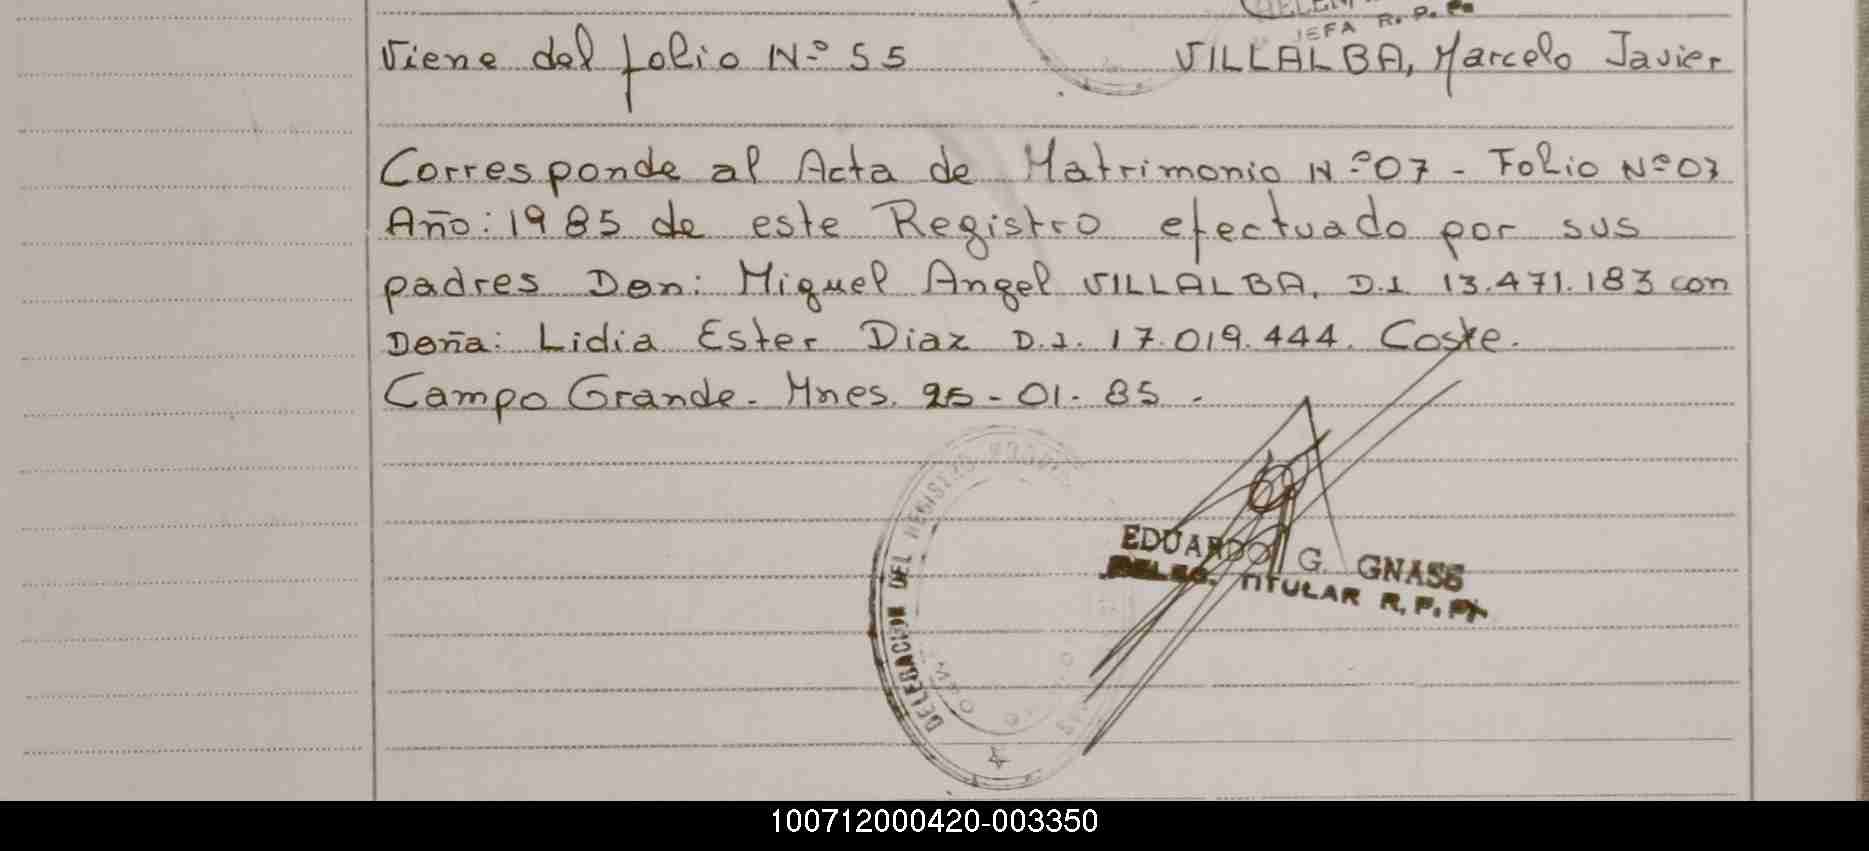 JEFA R. P. P.
Viene del folio N.º 55 VILLALBA, Marcelo Javier
Corresponde al Acta de Matrimonio N.º 07 - Folio Nº 07
Año: 1985 de este Registro efectuado por sus
padres Don: Miguel Angel VILLALBA, D.I. 13.471.183 con
Doña: Lidia Ester Diaz D.I. 17.019.444. Coste.
Campo Grande - Mnes. 25-01-85 -
DELEGACION DEL REGISTRO
EDUARDO G. GNASS
DELEG. TITULAR R. P. P.
100712000420-003350